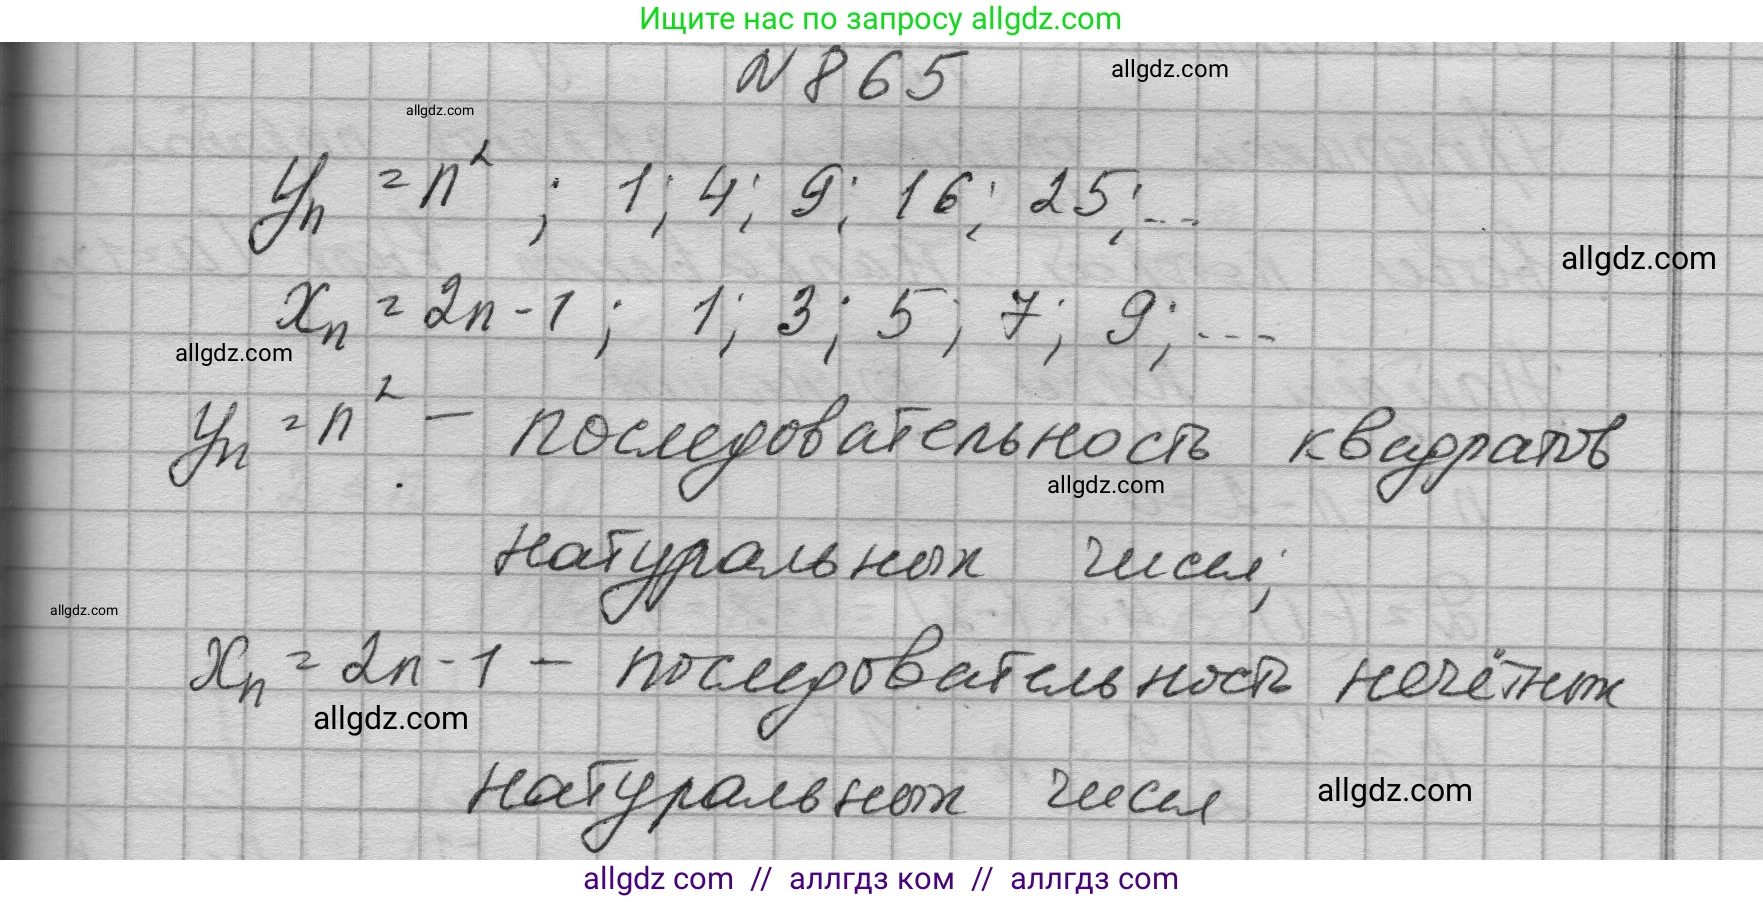 Ищите нас по запросу allgdz.com
№ 865
allgdz.com
allgdz.com
yₙ = n² ; 1; 4; 9; 16; 25; ...
allgdz.com
xₙ = 2n - 1; 1; 3; 5; 7; 9; ...
allgdz.com
yₙ = n² – последовательность квадратов
allgdz.com
натуральных чисел;
allgdz.com
xₙ = 2n - 1 – последовательность нечётных
allgdz.com
натуральных чисел
allgdz.com
allgdz com // аллгдз ком // аллгдз com